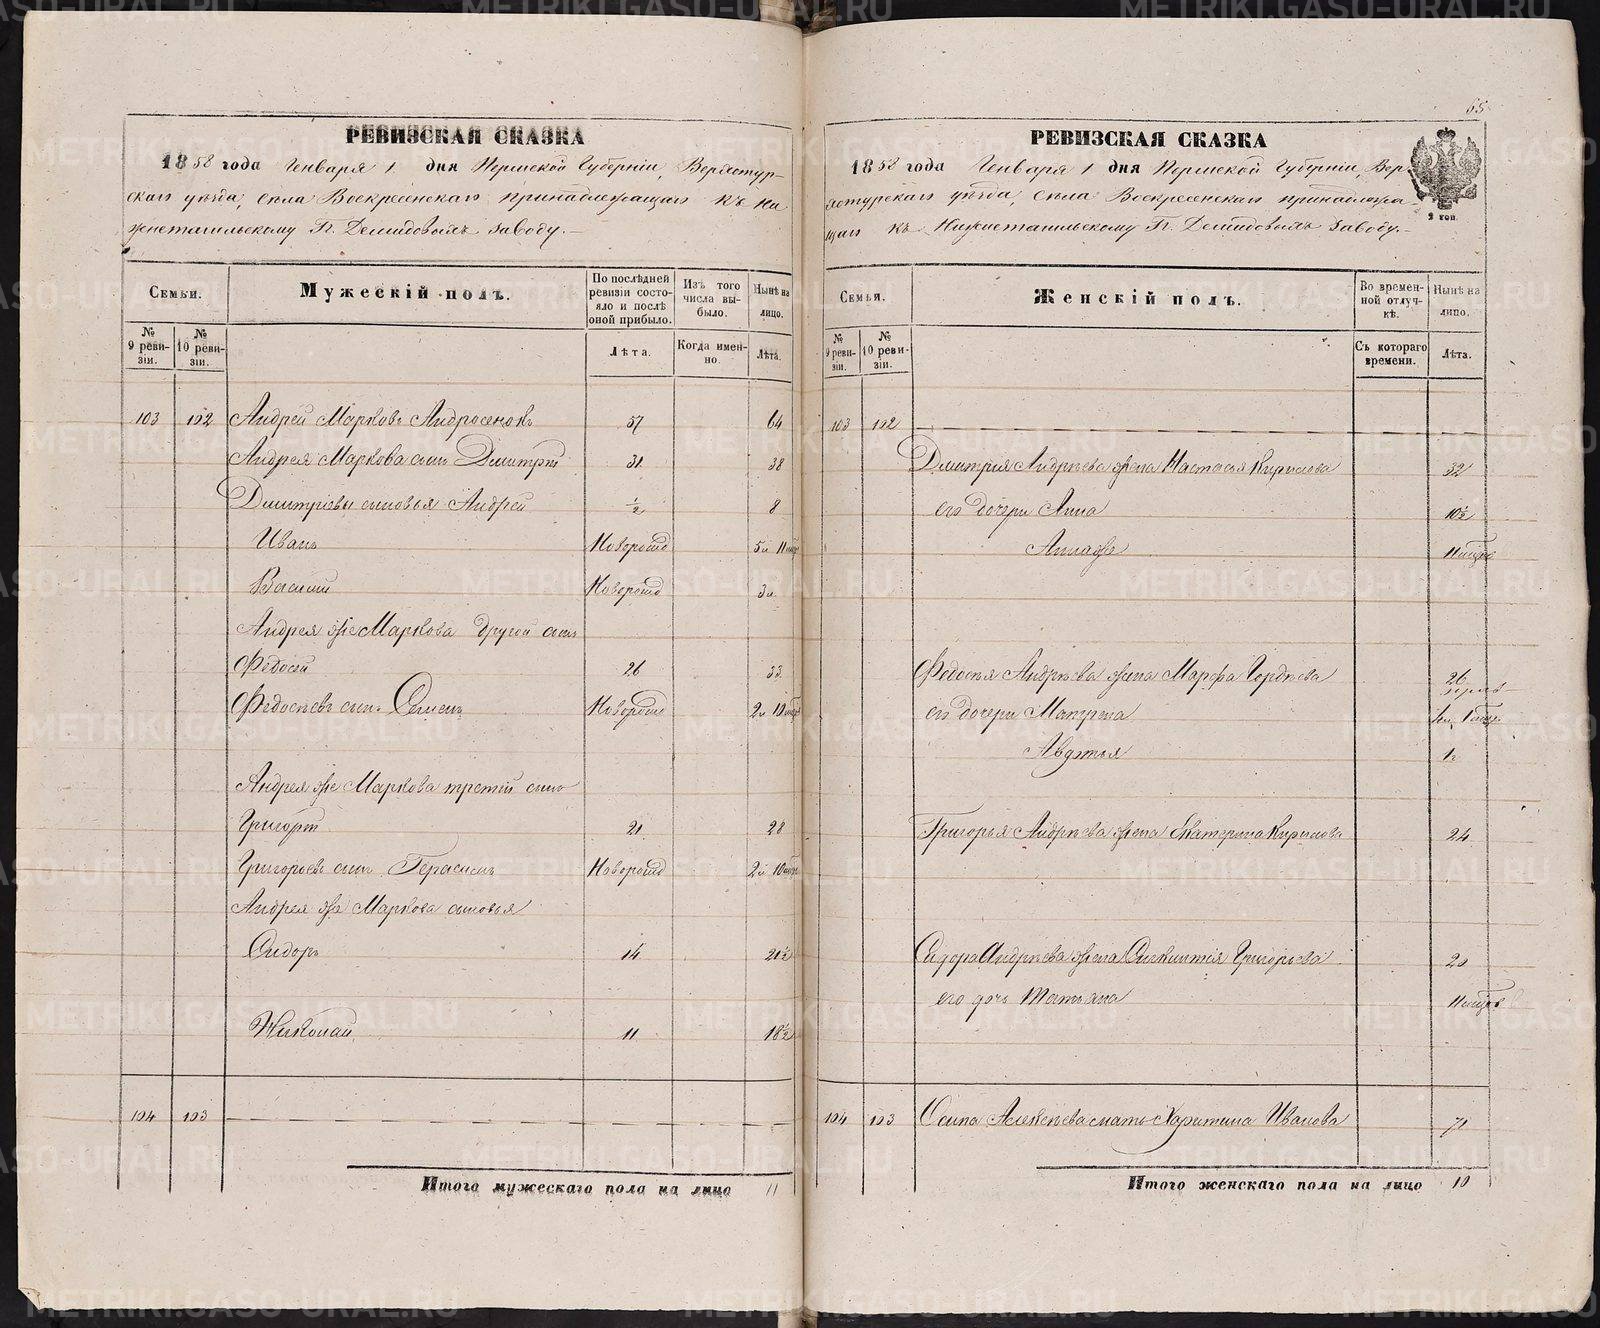 65
РЕВИЗСКАЯ СКАЗКА
1858 года Генваря 1 дня Пермской Губерніи, Верхотур-
скаго уѣзда, села Воскресенскаго принадлежащаго къ Ни
жнетагильскому Гг. Демидовыхъ заводу.
Семьи.
Мужескій полъ.
По послѣдней ревизіи состояло и послѣ оной прибыло.
Изъ того числа выбыло.
Нынѣ на лицо.
№ 9 ревизіи.
№ 10 ревизіи.
Лѣта.
Когда именно.
Лѣта.
103 102 Андрей Марковъ Андросенокъ 57 64
Андрея Маркова сынъ Дмитрій 31 38
Дмитріевы сыновья Андрей ½ 8
Иванъ Новорожд 5 л 11 мѣс
Василій Новорожд 3 л
Андрея же Маркова другой сынъ
Федосей 26 33
Федосѣевъ сынъ Семенъ Новорожд 2 л 10 мѣс
Андрея же Маркова третій сынъ
Григорій 21 28
Григорьевъ сынъ Герасимъ Новорожд 2 л 10 мѣс
Андрея же Маркова сыновья
Сидоръ 14 21½
Николай 11 18½
104 103
Итого мужескаго пола на лицо 11
РЕВИЗСКАЯ СКАЗКА
1858 года Генваря 1 дня Пермской Губерніи, Вер-
хотурскаго уѣзда, села Воскресенскаго принадлежа-
щаго къ Нижнетагильскому Гг. Демидовыхъ заводу.
Семьи.
Женскій полъ.
Во временной отлучкѣ.
Нынѣ на лицо.
№ 9 ревизіи.
№ 10 ревизіи.
Съ котораго времени.
Лѣта.
103 102
Дмитрія Андрѣева жена Настасья Кирилова 32
его дочери Анна 10½
Анна же 11 мѣс
Федосѣя Андрѣева жена Марфа Гордѣева 26
его дочери 1 мѣс
Авдотья 1
Григорья Андрѣева жена Екатерина Кирилова 24
Сидора Андрѣева жена Григорьева 20
его дочь Татьяна 11 мѣс
104 103 Осипа Алексѣева мать Харитина Иванова 71
Итого женскаго пола на лицо 10
METRIKI.GASO-URAL.RU